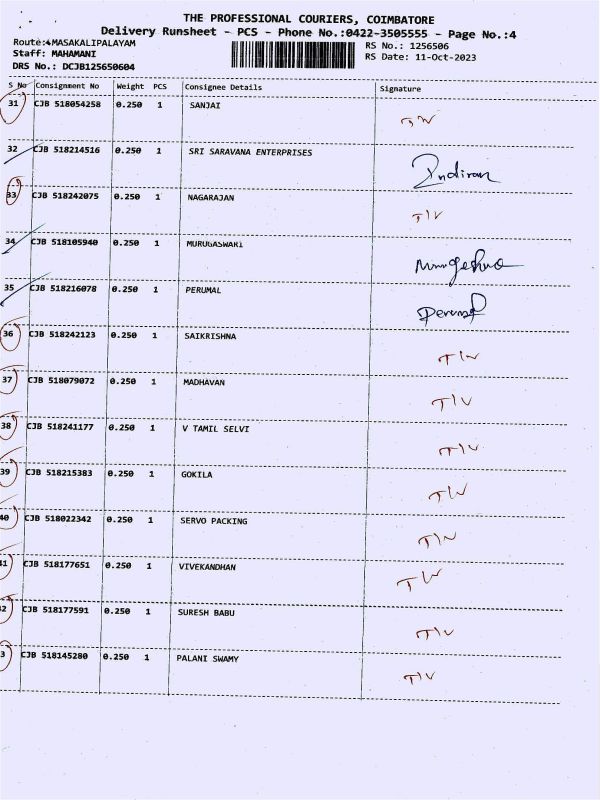 THE PROFESSIONAL COURIERS, COIMBATORE
Delivery Runsheet - PCS - Phone No.:0422-3505555 - Page No.:4
Route:4MASAKALIPALAYAM RS No.: 1256506
Staff: MAHAMANI RS Date: 11-Oct-2023
DRS No.: DCJB125650604
S No Consignment No Weight PCS Consignee Details Signature
31 CJB 518054258 0.250 1 SANJAI
32 CJB 518214516 0.250 1 SRI SARAVANA ENTERPRISES Indiran
33 CJB 518242075 0.250 1 NAGARAJAN T/W
34 CJB 518105940 0.250 1 MURUGASWARI
35 CJB 518216078 0.250 1 PERUMAL Perumal
36 CJB 518242123 0.250 1 SAIKRISHNA T/W
37 CJB 518079072 0.250 1 MADHAVAN T/W
38 CJB 518241177 0.250 1 V TAMIL SELVI T/W
39 CJB 518215383 0.250 1 GOKILA T/W
40 CJB 518022342 0.250 1 SERVO PACKING T/W
41 CJB 518177651 0.250 1 VIVEKANDHAN T/W
42 CJB 518177591 0.250 1 SURESH BABU T/W
3 CJB 518145280 0.250 1 PALANI SWAMY T/W